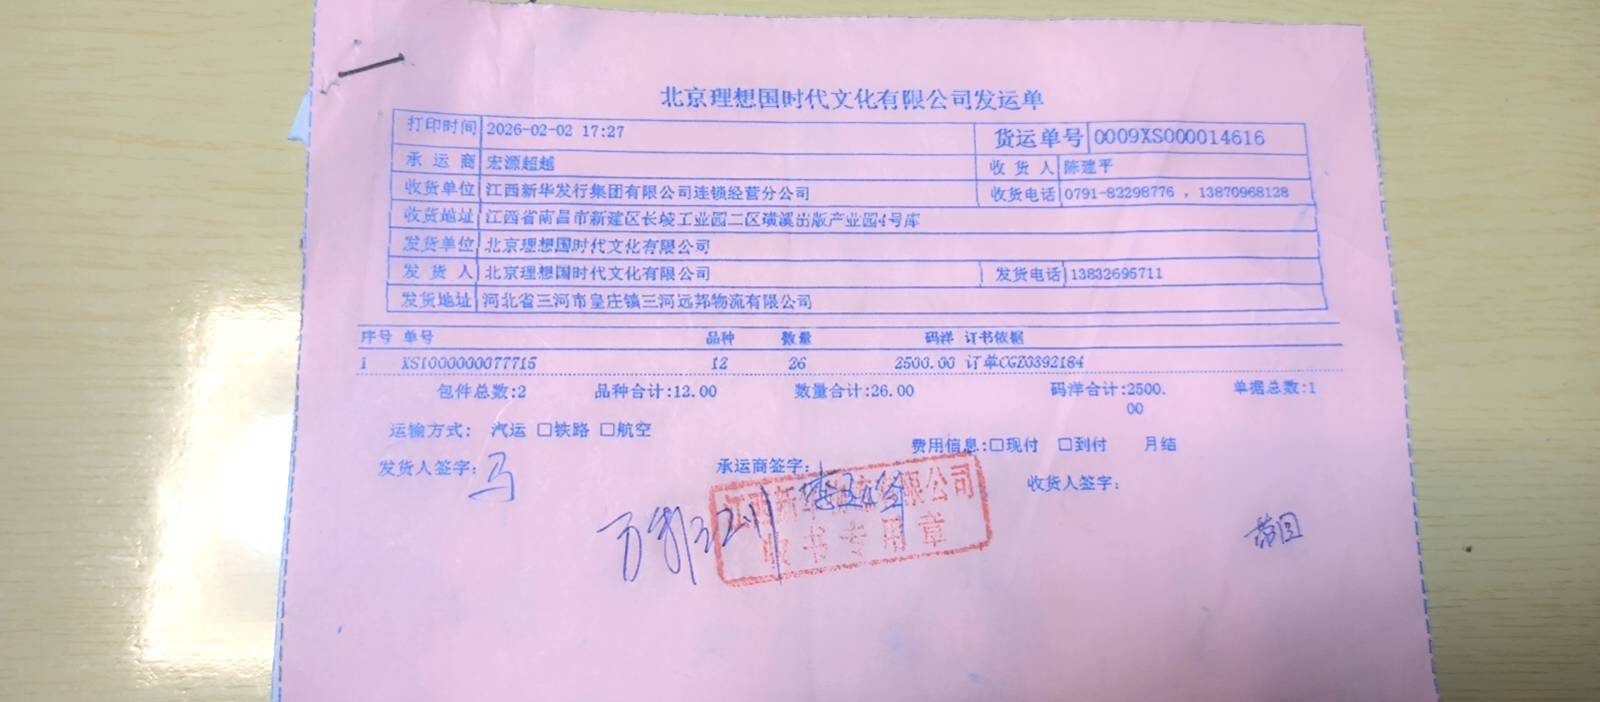 北京理想国时代文化有限公司发运单
打印时间 2026-02-02 17:27 货运单号 0009XS000014616
承运商 宏源超越 收货人 陈建平
收货单位 江西新华发行集团有限公司连锁经营分公司 收货电话 0791-82298776，13870968128
收货地址 江西省南昌市新建区长堎工业园二区璜溪出版产业园4号库
发货单位 北京理想国时代文化有限公司
发货人 北京理想国时代文化有限公司 发货电话 13832695711
发货地址 河北省三河市皇庄镇三河远邦物流有限公司
序号 单号 品种 数量 码洋 订书依据
1 XS1000000077715 12 26 2500.00 订单CGZ0392184
包件总数:2 品种合计:12.00 数量合计:26.00 码洋合计:2500.00 单据总数:1
运输方式: 汽运 □铁路 □航空
费用信息:□现付 □到付 月结
发货人签字: 马 承运商签字: 收货人签字:
江西新华 有限公司
收书专用章